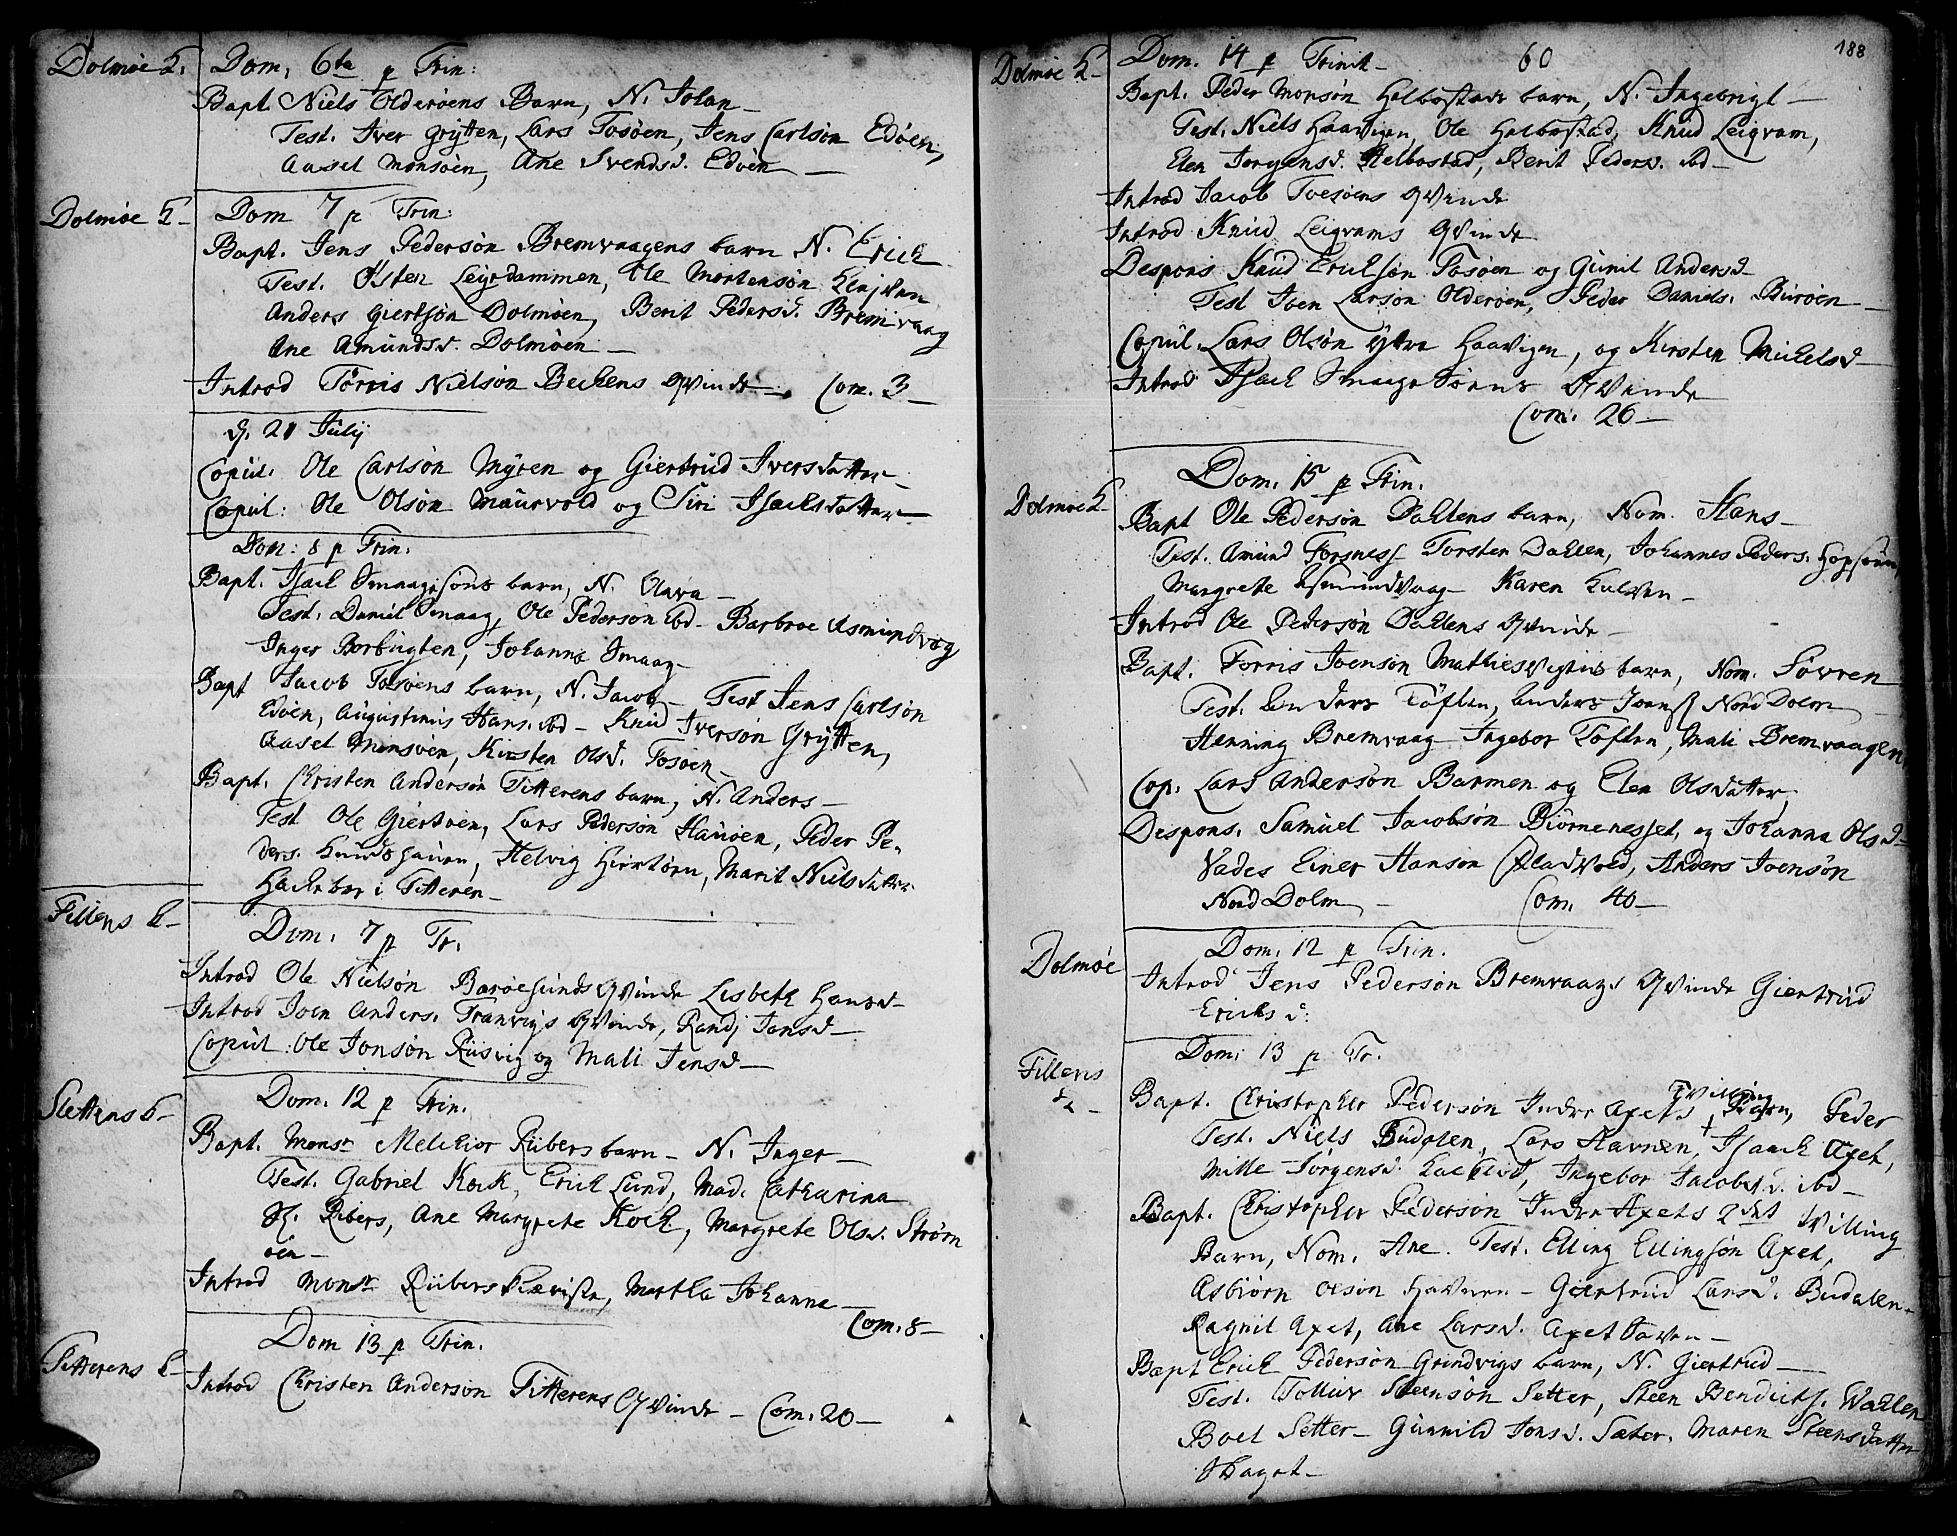 Dolmøe K. Dom. 6te p Trin:
Bapt Niels Olderøens Barn, N. Johan
Test. Iver Grÿtten, Lars Tosøen, Jens Carlsøn Edøen,
Aasel Monsøen, Ane Svendsd. Edøen
Dolmøe K Dom 7 p Trin:
Bapt. Jens Pedersøn Bremvaagens barn N. Erich
Test. Østen Leyrdammen, Ole Mortensøn
Anders Giertsøn Dolmøen, Berit Pedersd. Bremvaag
Ane Amundsd. Dolmøen
Introd Torris Nielsøn Bechens Qvinde Com. 3
d. 21 Julij
Copul. Ole Carlsøn Myren og Giertrud Iversdatter
Copul: Ole Olsøn Maurvold og Siri Isachsdatter
Dom: 8 p Trin.
Bapt. Isach Smaagesøns barn, N. Olava
Test. Daniel Smaag, Ole Pedersøn ibd Barbroe Asmundvog
Inger Borbugten, Johanna Smaag
Bapt Jacob Tosøens barn, N. Jacob Test Jens Carlsøn
Edøen, Augustinus Hans. ibd Knud Iversøn Grÿtten,
Aasel Monsøen, Kirsten Olsd. Tosøen
Bapt. Christen Andersøn Titterens barn, N. Anders
Test Ole Giertøen, Lars Pedersøn Hauøen, Peder Pe-
ders. Knudshauen, Helvig Hiertøen, Marit Nielsdatter
i Titteren
Fillens K Dom. 7 p Tr.
Introd Ole Nielsøn Barøesunds Qvinde Lisbeth Hansd
Introd Joen Anders. Tranvigs Qvinde, Randj Jonsd
Copul: Ole Jonsøn Riisvig og Mali Jensd
Slettens K Dom. 12 p Trin.
Bapt. Monsr Melchior Rübers barn N. Inger
Test. Gabriel Kock, Erich Lund, Mad. Catharina
Sl. Ribers, Ane Margrete Kock, Margrete Olsd. Strøm
øen
Introd Monsr Rübers Kieriste, Martha Johanna
Com. 8
Titterens K Dom 13 p Trin.
Introd Christen Andersøn Titterens Qvinde Com. 20
188
Dolmøe K Dom. 14 p Trinit 60
Bapt. Peder Monsøn Helbostads barn, N. Ingebrigt
Test. Niels Haavigen, Ole Helbostad, Knud Leigvam,
Elen Jørgensd. Helbostad, Berit Peders. ibd
Introd Jacob Tosøens Qvinde
Introd Knud Leigvams Qvinde
Despons Knud Erichsøn Tosøen og Gunil Andersd
Test Joen Larsøn Olderøen, Peder Daniels. Burøen
Copul. Lars Olsøn Ytre Haavigen, og Kirsten Michelsd
Introd Isach Smaagesøens Qvinde
Com. 26
Dolmøe K Dom. 15 p Trin.
Bapt Ole Pedersøn Dahlens barn, Nom. Hans
Test. Amund Forsness Torsten Dahlen, Johannes Peders. Hopsøen,
Margrete Asmundvaag Karen Kulven
Introd Ole Pedersøn Dahlens Qvinde
Bapt. Torris Joensøn Mathiesvigens barn, Nom. Søvren
Test. Anders Tøften, Anders Joens Nord Dolm
Henning Bremvaag Ingebor Toften, Mali Bremvaagen
Cop. Lars Andersøn Barmen og Elen Olsdatter
Despons. Samuel Jacobsøn Biørnenesset, og Johanna Olsd
Vades Einer Hansøn Fladvold, Anders Joensøn
Nord Dolm Com. 40
Dolmøe Dom. 12 p Trin.
Introd Jens Pedersøn Bremvaags Qvinde Giertrud
Erichsd:
Fillens K Dom. 13 p Tr.
Bapt. Christopher Pedersøn Indre Axets Tvilling Barn, Peder
Test. Niels Budalen, Lars Havnen, Isaach Axet,
Mille Jørgensd. Ingebor Jacobsd. ibd
Bapt. Christopher Pedersøn Indre Axets 2det Tvilling
Barn, Nom. Ane. Test. Elling Ellingsøn Axet,
Asbiørn Olsøn Havnen Giertrud Larsd. Budalen
Ragnil Axet, Ane Larsd. Axethaven
Bapt Erich Pedersøn Grindvigs barn, N. Giertrud
Test. Tollur Steensøn Setter, Steen Bendichs. Wahlen
Boel Setter Gunnild Jonsd. Sæter. Maren Steensdatter